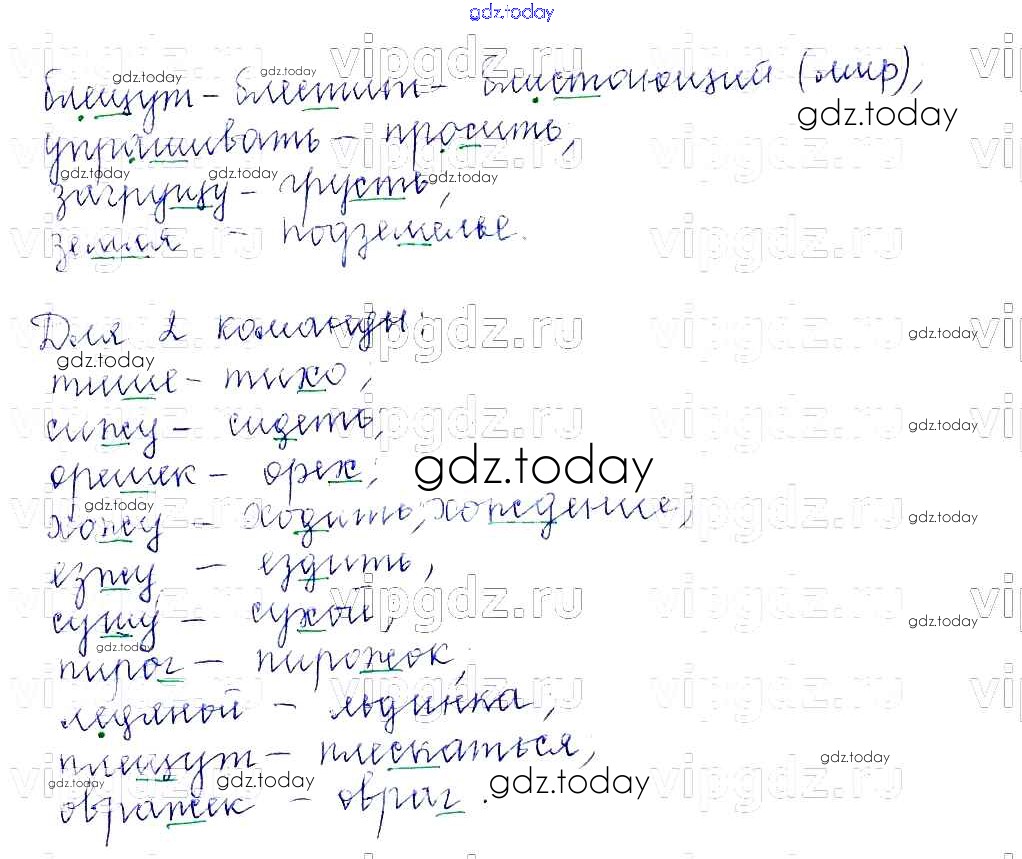 gdz.today
блещут - блестит - блистающий (мир),
упрашивать - просить,
загрущу - грусть,
земля - подземелье.
Для 2 команды:
тише - тихо;
сижу - сидеть;
орешек - орех;
хожу - ходить, хождение,
езжу - ездить,
сушу - сухой,
пирог - пирожок,
ледяной - льдинка,
плещут - плескаться,
овражек - овраг.